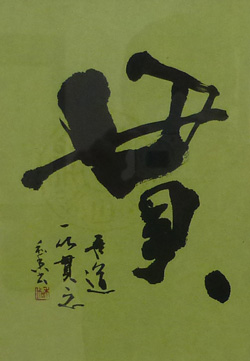 貫
吾道
一以貫之